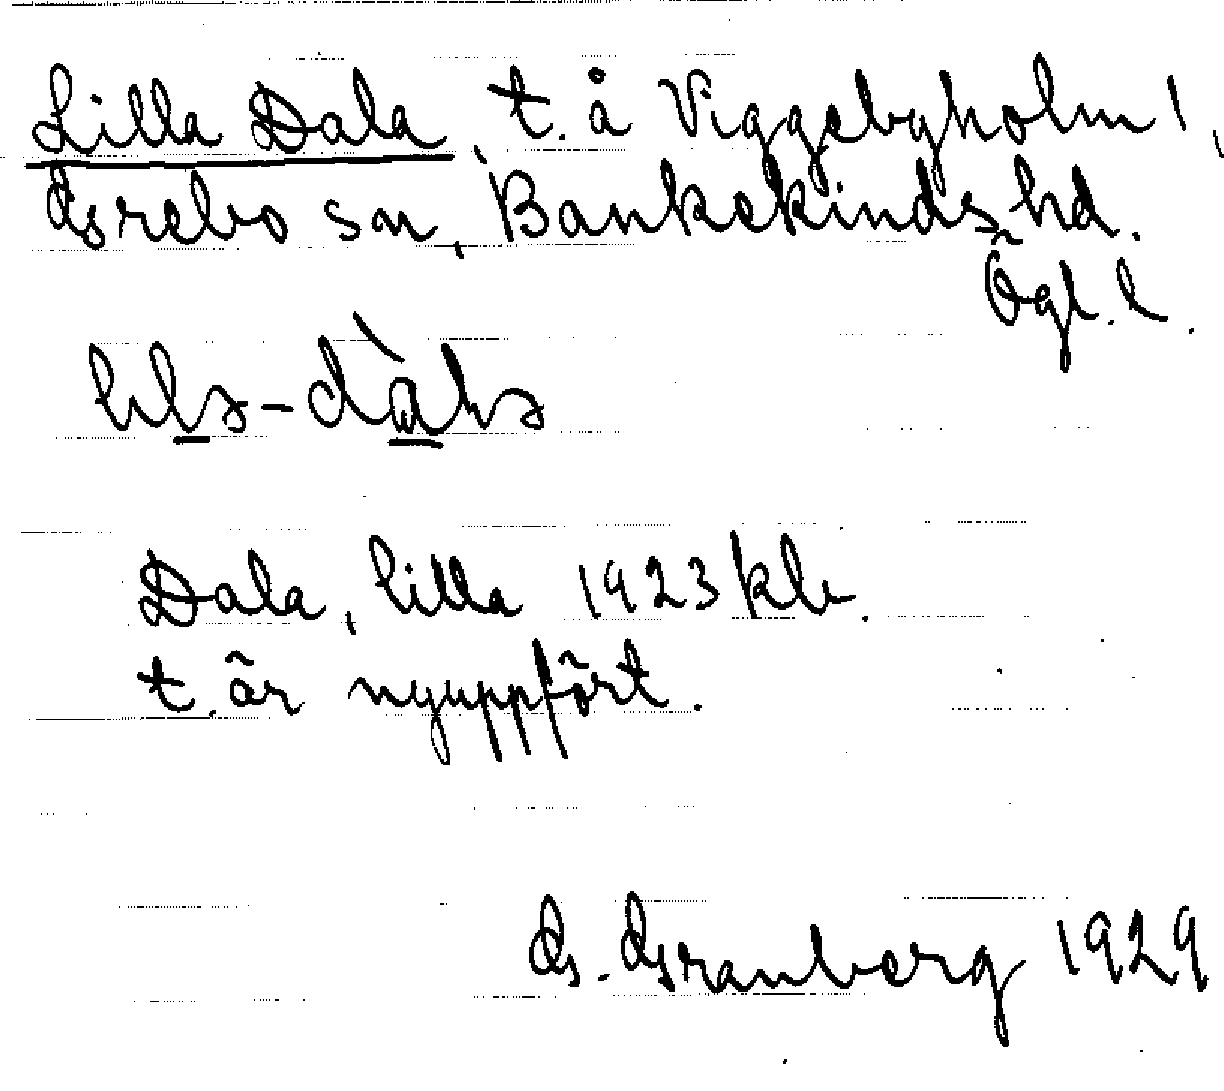 Lilla Dala, t. å Viggebyholm 1,
Grebo sn, Bankekinds hd.
Ögl. l.
lɩlɜ-dàlɜ
Dala, lilla 1923 kb.
t. är nyuppfört.
G. Granberg 1929